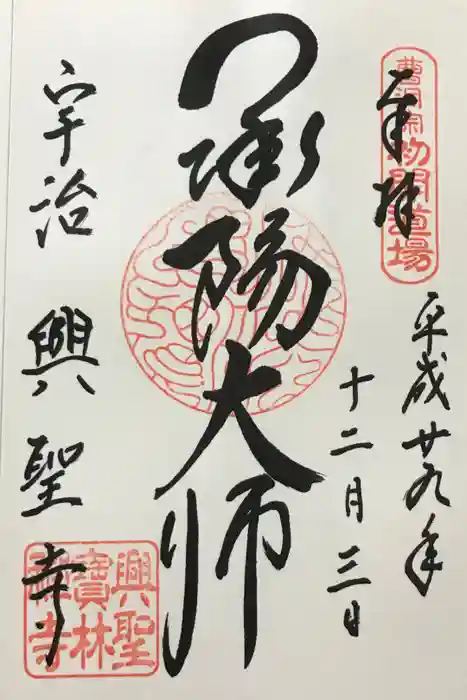 奉拝
曹洞宗初開道場
平成廿九年
十二月三日
承陽大师
宇治 興聖寺
興聖
寶林
禅寺